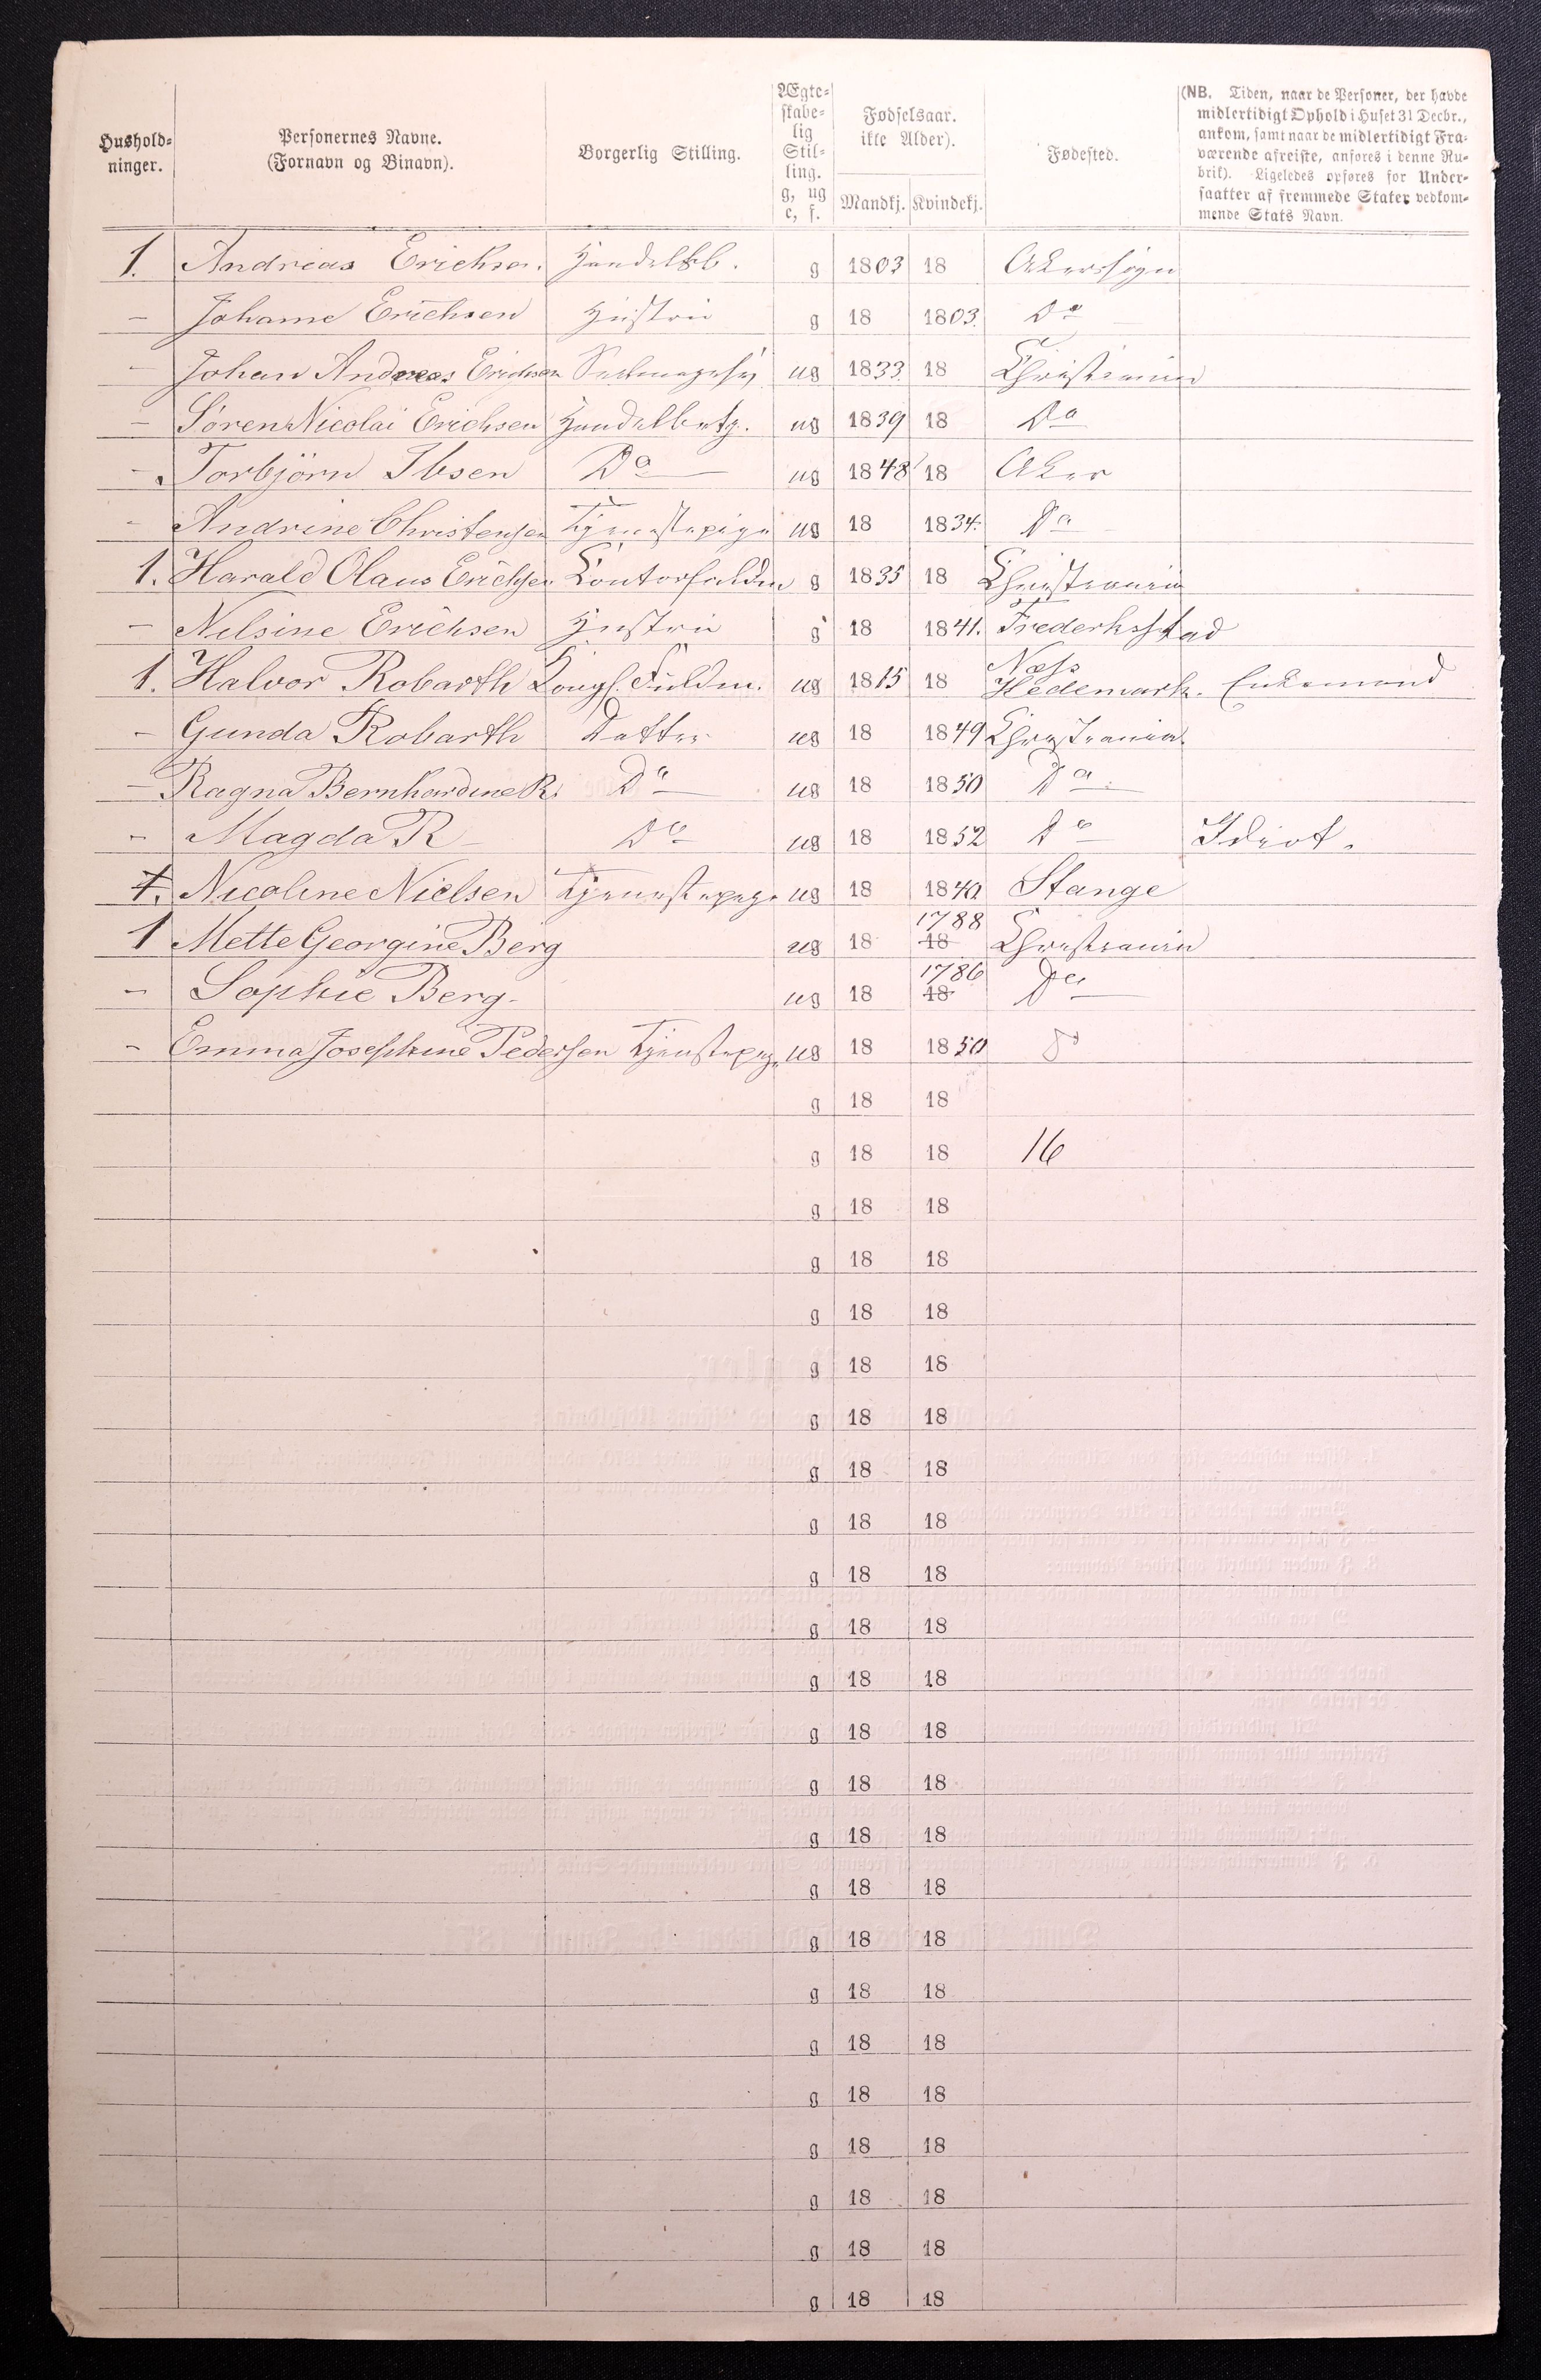 Hushold-
ninger.
Personernes Navne.
(Fornavn og Binavn).
Borgerlig Stilling.
Ægte-
skabe-
lig
Stil-
ling.
g, ug
e, f.
Fødselsaar.
ikke Alder).
Mandkj. Kvindekj.
Fødested.
(NB. Tiden, naar de Personer, der havde
midlertidigt Ophold i Huset 31 Decbr.,
ankom, samt naar de midlertidigt Fra-
værende afreiste, anføres i denne Ru-
brik). Ligeledes opføres for Under-
saatter af fremmede Stater vedkom-
mende Stats Navn.
1. Andreas Erichsen. Handelsb. g 1803 18 Akerssogn
- Johanne Erichsen Hustru g 18 1803. Do
- Johan Andreas Erichsen ug 1833 18 Christiania
- Søren Nicolai Erichsen Handelsbetj. ug 1839 18 Do
- Torbjörn Ibsen Do ug 1848 18 Aker
- Andrine Christensen Tjenestepige ug 18 1834. Do
1. Harald Olaus Erichsen Contorfuldm g 1835 18 Christiania
- Nilsine Erichsen Hustru g 18 1841. Frederksstad
1. Halvor Robarth Kongl. Fuldm. ug 1815 18 Næss Hedemark. Enkemand
- Gunda Robarth Datter ug 18 1849 Christiania.
- Ragna Bernhardine R. Do ug 18 1850 Do
- Magda R - Do ug 18 1852 Do Idiot.
1. Nicoline Nielsen Tjenestepige ug 18 1840. Stange
1 Mette Georgine Berg ug 18 1788 18 Christiania
- Sophie Berg - ug 18 1786 18 Do
- Emma Josephine Pedersen Tjenstepige ug 18 1850 Do
g 18 18
g 18 18 16
g 18 18
g 18 18
g 18 18
g 18 18
g 18 18
g 18 18
g 18 18
g 18 18
g 18 18
g 18 18
g 18 18
g 18 18
g 18 18
g 18 18
g 18 18
g 18 18
g 18 18
g 18 18
g 18 18
g 18 18
g 18 18
g 18 18